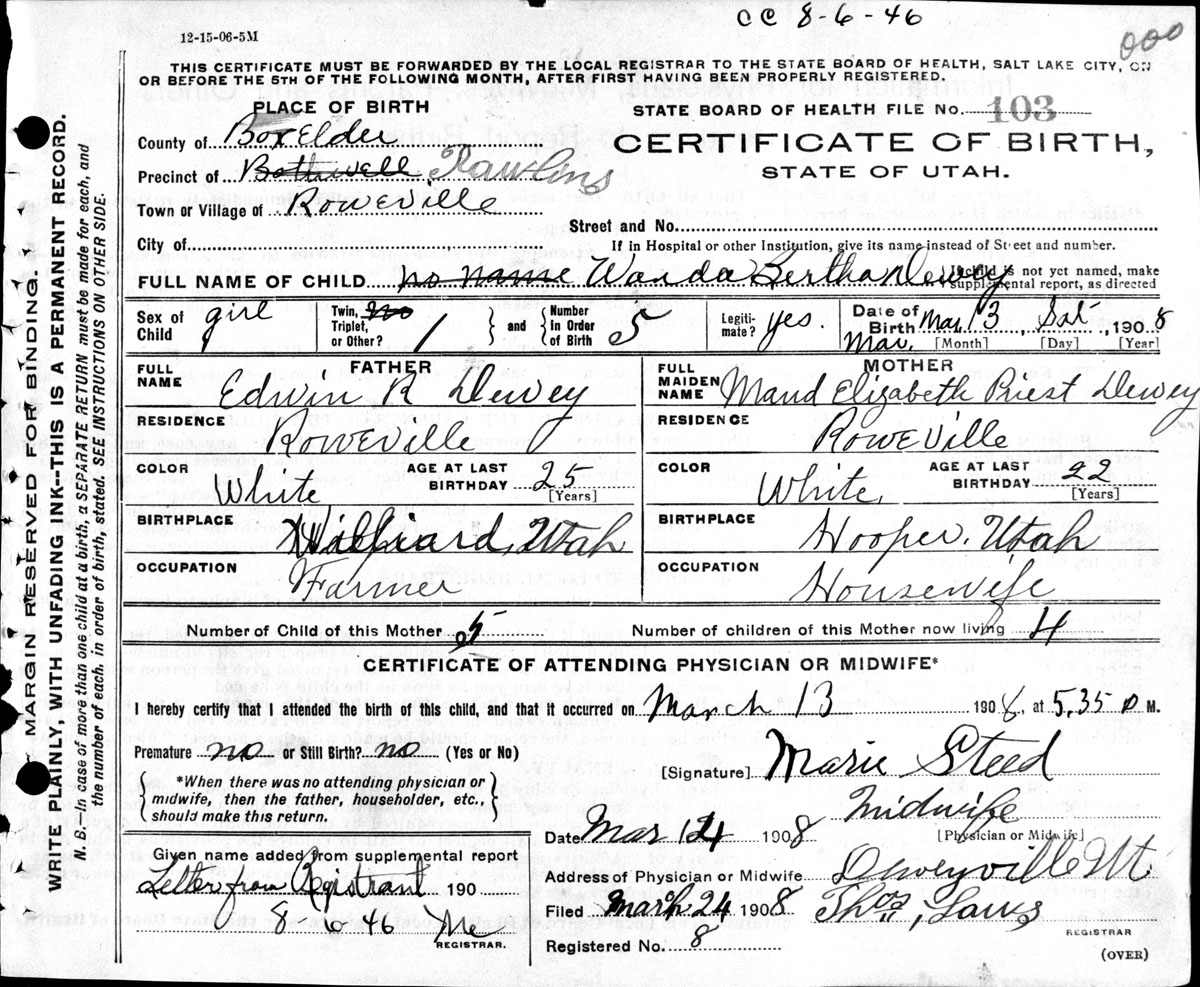 CC 8-6-46
000
12-15-06-5M
THIS CERTIFICATE MUST BE FORWARDED BY THE LOCAL REGISTRAR TO THE STATE BOARD OF HEALTH, SALT LAKE CITY, ON
OR BEFORE THE 5TH OF THE FOLLOWING MONTH, AFTER FIRST HAVING BEEN PROPERLY REGISTERED.
PLACE OF BIRTH
STATE BOARD OF HEALTH FILE No. 103
County of Box Elder
CERTIFICATE OF BIRTH,
Precinct of Bothwell Rawlins
STATE OF UTAH.
Town or Village of Roweville
Street and No.
City of
If in Hospital or other Institution, give its name instead of Street and number.
FULL NAME OF CHILD no name Wanda Bertha Dewey
If child is not yet named, make supplemental report, as directed
Sex of Child girl
Twin, Triplet, or Other? no 1
and
Number In Order of Birth 5
Legitimate? yes.
Date of Birth Mar 13, Sat, 1908
Mar. [Month] [Day] [Year]
FATHER
FULL NAME Edwin R Dewey
RESIDENCE Roweville
COLOR White
AGE AT LAST BIRTHDAY 25 [Years]
BIRTHPLACE Utah
OCCUPATION Farmer
MOTHER
FULL MAIDEN NAME Maud Elizabeth Priest Dewey
RESIDENCE Roweville
COLOR White,
AGE AT LAST BIRTHDAY 22 [Years]
BIRTHPLACE Hooper, Utah
OCCUPATION Housewife
Number of Child of this Mother 5
Number of children of this Mother now living 4
CERTIFICATE OF ATTENDING PHYSICIAN OR MIDWIFE*
I hereby certify that I attended the birth of this child, and that it occurred on March 13 1908, at 5.35 P M.
Premature no or Still Birth? no (Yes or No)
[Signature] Marie Steed
*When there was no attending physician or
midwife, then the father, householder, etc.,
should make this return.
Midwife
[Physician or Midwife]
Date Mar 24 1908
Given name added from supplemental report
Letter from Registrant 190
8 6 46
REGISTRAR.
Address of Physician or Midwife Deweyville Ut
Filed March 24 1908 Thos, Laws
REGISTRAR
Registered No. 8
(OVER)
MARGIN RESERVED FOR BINDING.
WRITE PLAINLY, WITH UNFADING INK—THIS IS A PERMANENT RECORD.
N. B.—In case of more than one child at a birth, a SEPARATE RETURN must be made for each, and
the number of each, in order of birth, stated. SEE INSTRUCTIONS ON OTHER SIDE.